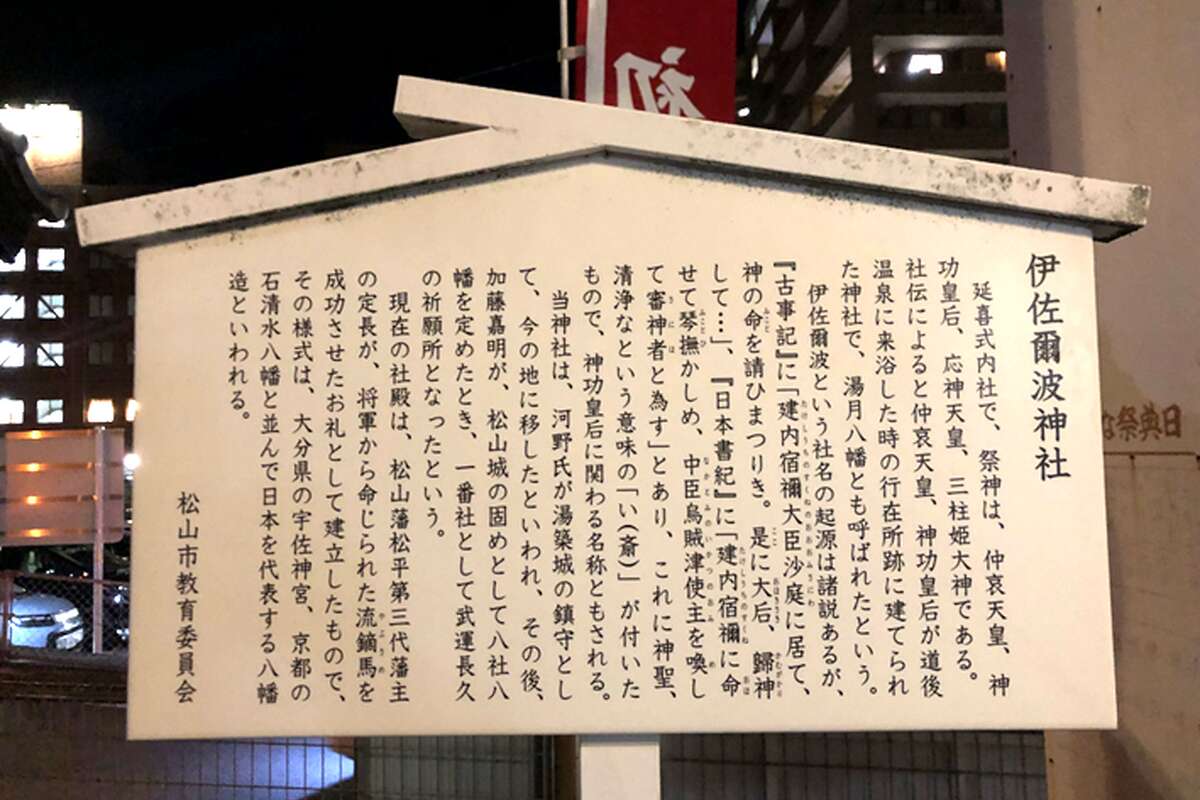 伊佐爾波神社
延喜式内社で、祭神は、仲哀天皇、神
功皇后、応神天皇、三柱姫大神である。
社伝によると仲哀天皇、神功皇后が道後
温泉に来浴した時の行在所跡に建てられ
た神社で、湯月八幡とも呼ばれたという。
伊佐爾波という社名の起源は諸説あるが、
『古事記』に「建内宿禰大臣沙庭に居て、
神の命を請ひまつりき。是に大后、歸神
して…」、『日本書紀』に「建内宿禰に命
せて琴撫かしめ、中臣烏賊津使主を喚し
て審神者と為す」とあり、これに神聖、
清浄なという意味の「い(斎)」が付いた
もので、神功皇后に関わる名称ともされる。
当神社は、河野氏が湯築城の鎮守とし
て、今の地に移したといわれ、その後、
加藤嘉明が、松山城の固めとして八社八
幡を定めたとき、一番社として武運長久
の祈願所となったという。
現在の社殿は、松山藩松平第三代藩主
の定長が、将軍から命じられた流鏑馬を
成功させたお礼として建立したもので、
その様式は、大分県の宇佐神宮、京都の
石清水八幡と並んで日本を代表する八幡
造といわれる。
松山市教育委員会
初
祭典日